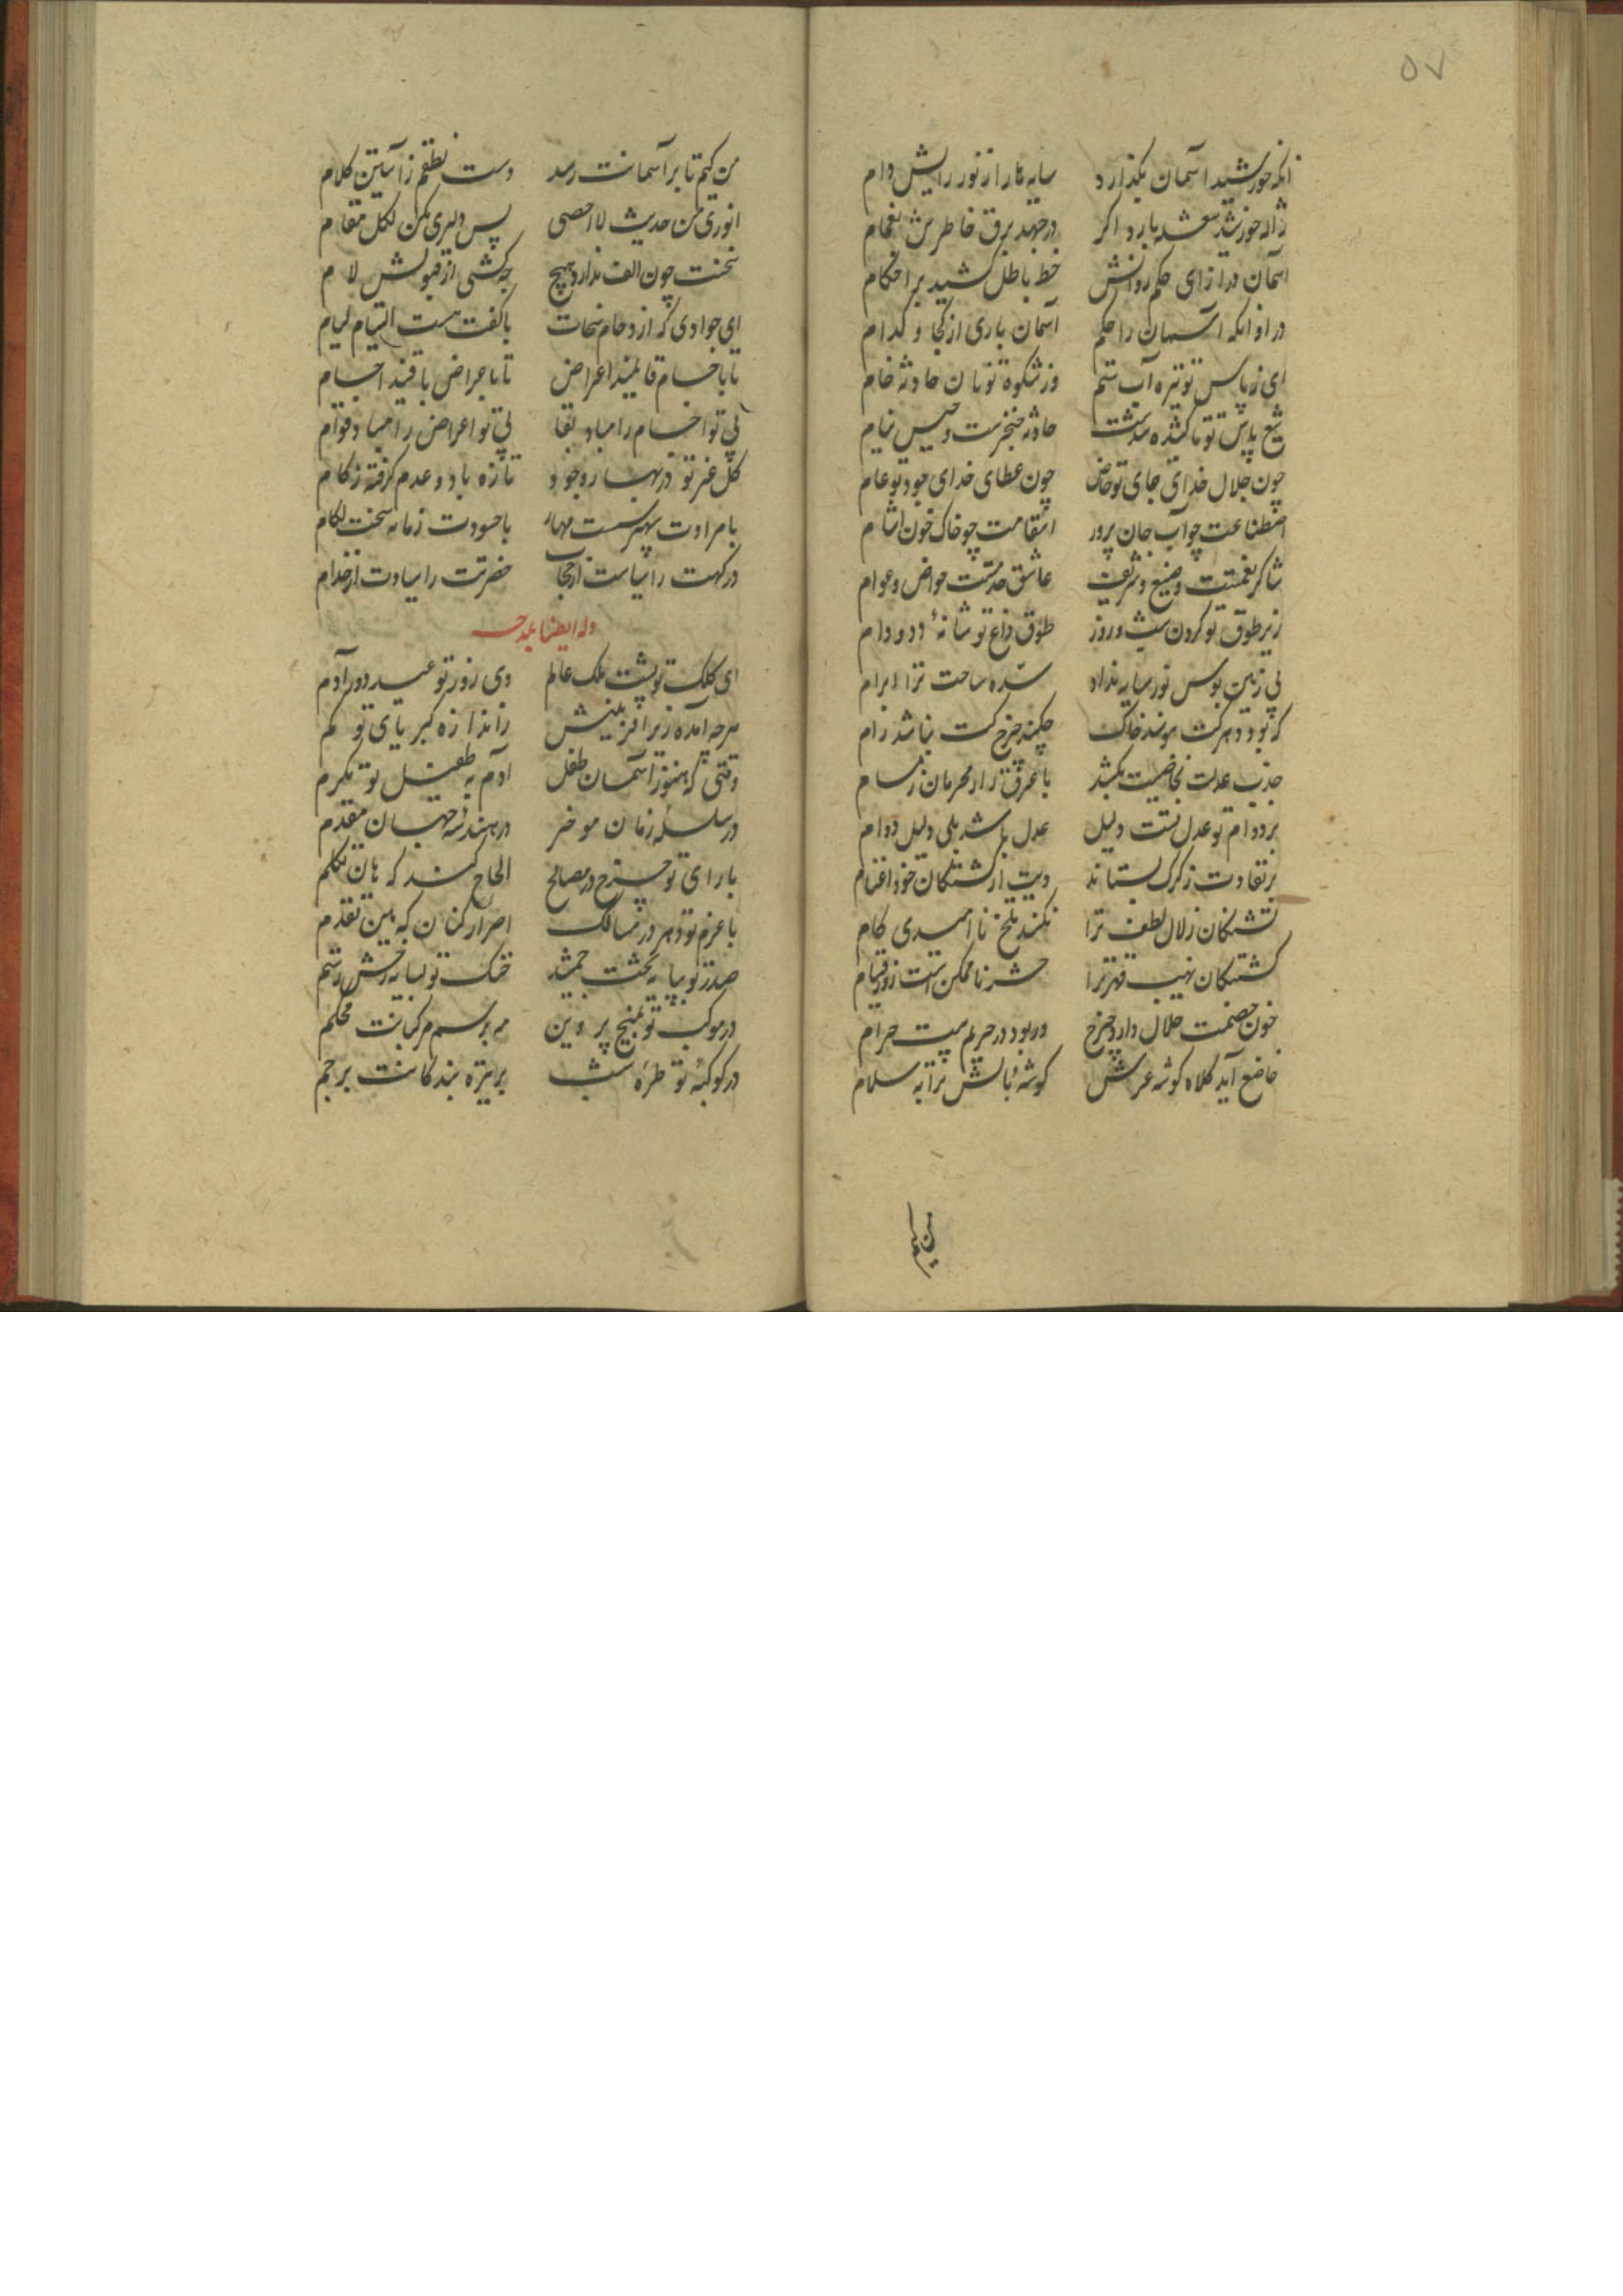 ۵۷
آنکه خورشید آسمان بگذارد سایه‌ها را از نور رایش وام
ژاله خورشید شعشعه بارد اگر درجهد برق خاطرش بغمام
آسمان در ازای حکم روانش خط باطل کشید بر احکام
در او آنکه آسمان را حکم آسمان باری از کجا و کدام
ای ز پاس تو تیره آب ستم وز شکوه تو نان حادثه خام
تیغ پاس تو تا کشیده شدست حادثه خنجرست و حبس نیام
چون جلال خدای جای تو خاص چون عطای خدای جود تو عام
اصطناعت چو آب جان پرور انتقامت چو خاک خون آشام
شاکر نعمتت وضیع و شریف عاشق خدمتت خواص و عوام
زیر طوق تو گردن شب و روز طوق داغ تو شانهٔ دد و دام
بی زمین بوس نور سایه نداد سده ساحت ترا ابرام
که بود دهر کت نبوسد خاک چکند چرخ کت نباشد رام
جذب عدلت بخاصیت بکشد با عرق راز محرمان ز مسام
بر دوام تو عدل تست دلیل عدل باشد بلی دلیل دوام
بر تفاوت ز گرگ بستاند دیت از کشتگان خود اغنام
تشنگان زلال لطف ترا نکند تلخ ناامیدی کام
کشتگان نهیب قهر ترا حشر ناممکن است روز قیام
خون خصمت حلال دارد چرخ ور بود در حریم بیت حرام
خاضع آید کلاه گوشه عرش گوشهٔ بالش ترا به سلام
من کیم
من کیم تا بر آسمانت رسد دست نطقم ز آستین کلام
انوری من حدیث لا احصی پس دلیری مکن لکل مقام
سخنت چون الف ندارد هیچ چه کشی از قبولش لام
ای جوادی که ازدحام سخات با کفت هست التیام لیام
تا با جسام قایمند اعراض تا با عراض باقیند اجسام
بی تو اجسام را مباد بقا بی تو اعراض را مباد قوام
گل عز تو در بهار وجود تازه باد و عدم گرفته زکام
با مرادت سپهر سست مهار با حسودت زمانه سخت لگام
درگهت را سیاست از حجاب حضرتت را سیادت از خدام
وله ایضا بمدحه
ای کلک تو پشت ملک عالم وی روز تو عید دور آدم
هرچه آمده زیر آفرینش ز اندازه کبریای تو کم
وقتی که هنوز آسمان طفل آدم به طفیل تو مکرم
در سلسله زمان موخر در هندسه جهان مقدم
با رای تو چرخ در مصالح الحاح کنند که هان تکلم
با عزم تو دهر در مسالک اصرار کنان که هین تقدم
صدر تو بپایه تخت جمشید خنگ تو بسایه رخش رستم
در موکب تو بمنج پروین بر پرسم مرکبانت محکم
در کوکبهٔ تو طرهٔ شب بر نیزه بندگانت پرچم